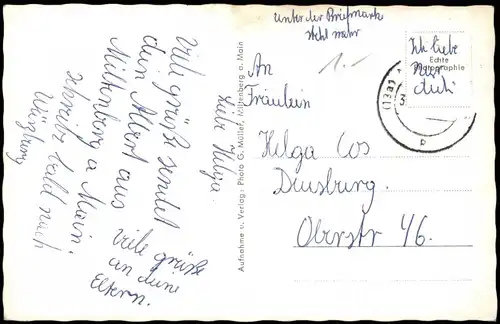 unter der Briefmarke
steht mehr
Ich liebe
nur
dich
Echte
Photographie
(13a)
1.-
An
Fräulein
Helga Cos
Duisburg.
Oberstr 46.
Aufnahme u. Verlag: Photo G. Müller, Miltenberg a. Main
Liebe Helga
Viele grüße sendet
dein Albert aus
Miltenberg a Main.
schreibe bald nach
Würzburg
viele grüße
an deine
Eltern.